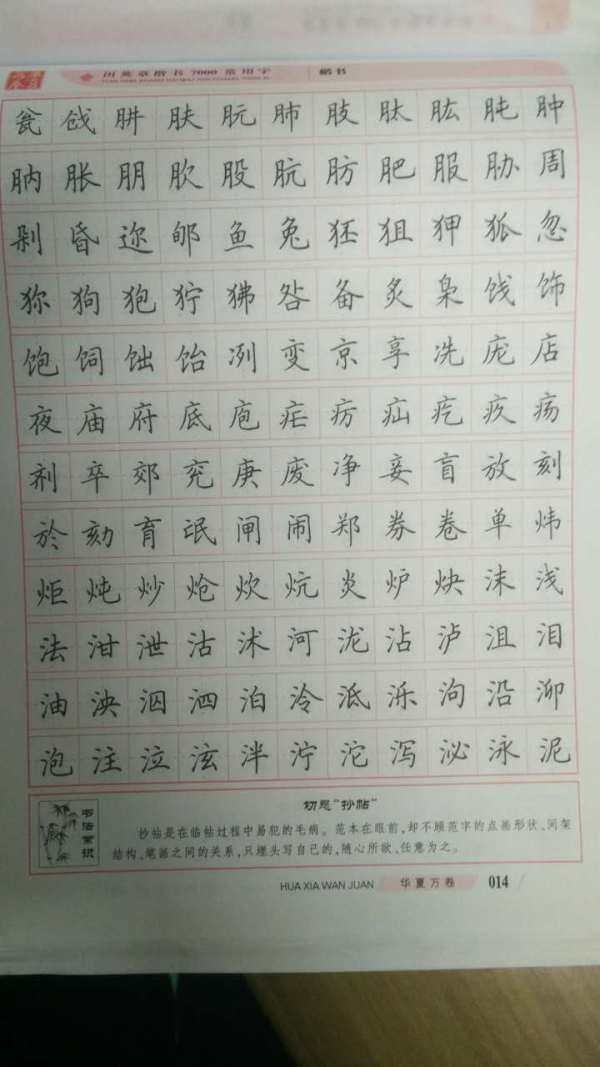 田英章楷书7000常用字 楷书
瓮 戗 肼 肤 朊 肺 肢 肽 肱 肫 肿
肭 胀 朋 肷 股 肮 肪 肥 服 胁 周
剁 昏 迩 郇 鱼 兔 狉 狙 狎 狐 忽
狝 狗 狍 狞 狒 咎 备 炙 枭 饯 饰
饱 饲 饳 饴 冽 变 京 享 冼 庞 店
夜 庙 府 底 庖 疟 疠 疝 疙 疚 疡
剂 卒 郊 兖 庚 废 净 妾 盲 放 刻
於 劾 育 氓 闸 闹 郑 券 卷 单 炜
炬 炖 炒 炝 炊 炕 炎 炉 炔 沫 浅
法 泔 泄 沽 沭 河 泷 沾 泸 沮 泪
油 泱 泅 泗 泊 泠 泜 泺 泃 沿 泖
泡 注 泣 泫 泮 泞 沱 泻 泌 泳 泥
书法常识
切忌“抄帖”
抄帖是在临帖过程中易犯的毛病。范本在眼前,却不顾范字的点画形状、间架
结构、笔画之间的关系,只埋头写自己的,随心所欲、任意为之。
HUA XIA WAN JUAN 华夏万卷 014